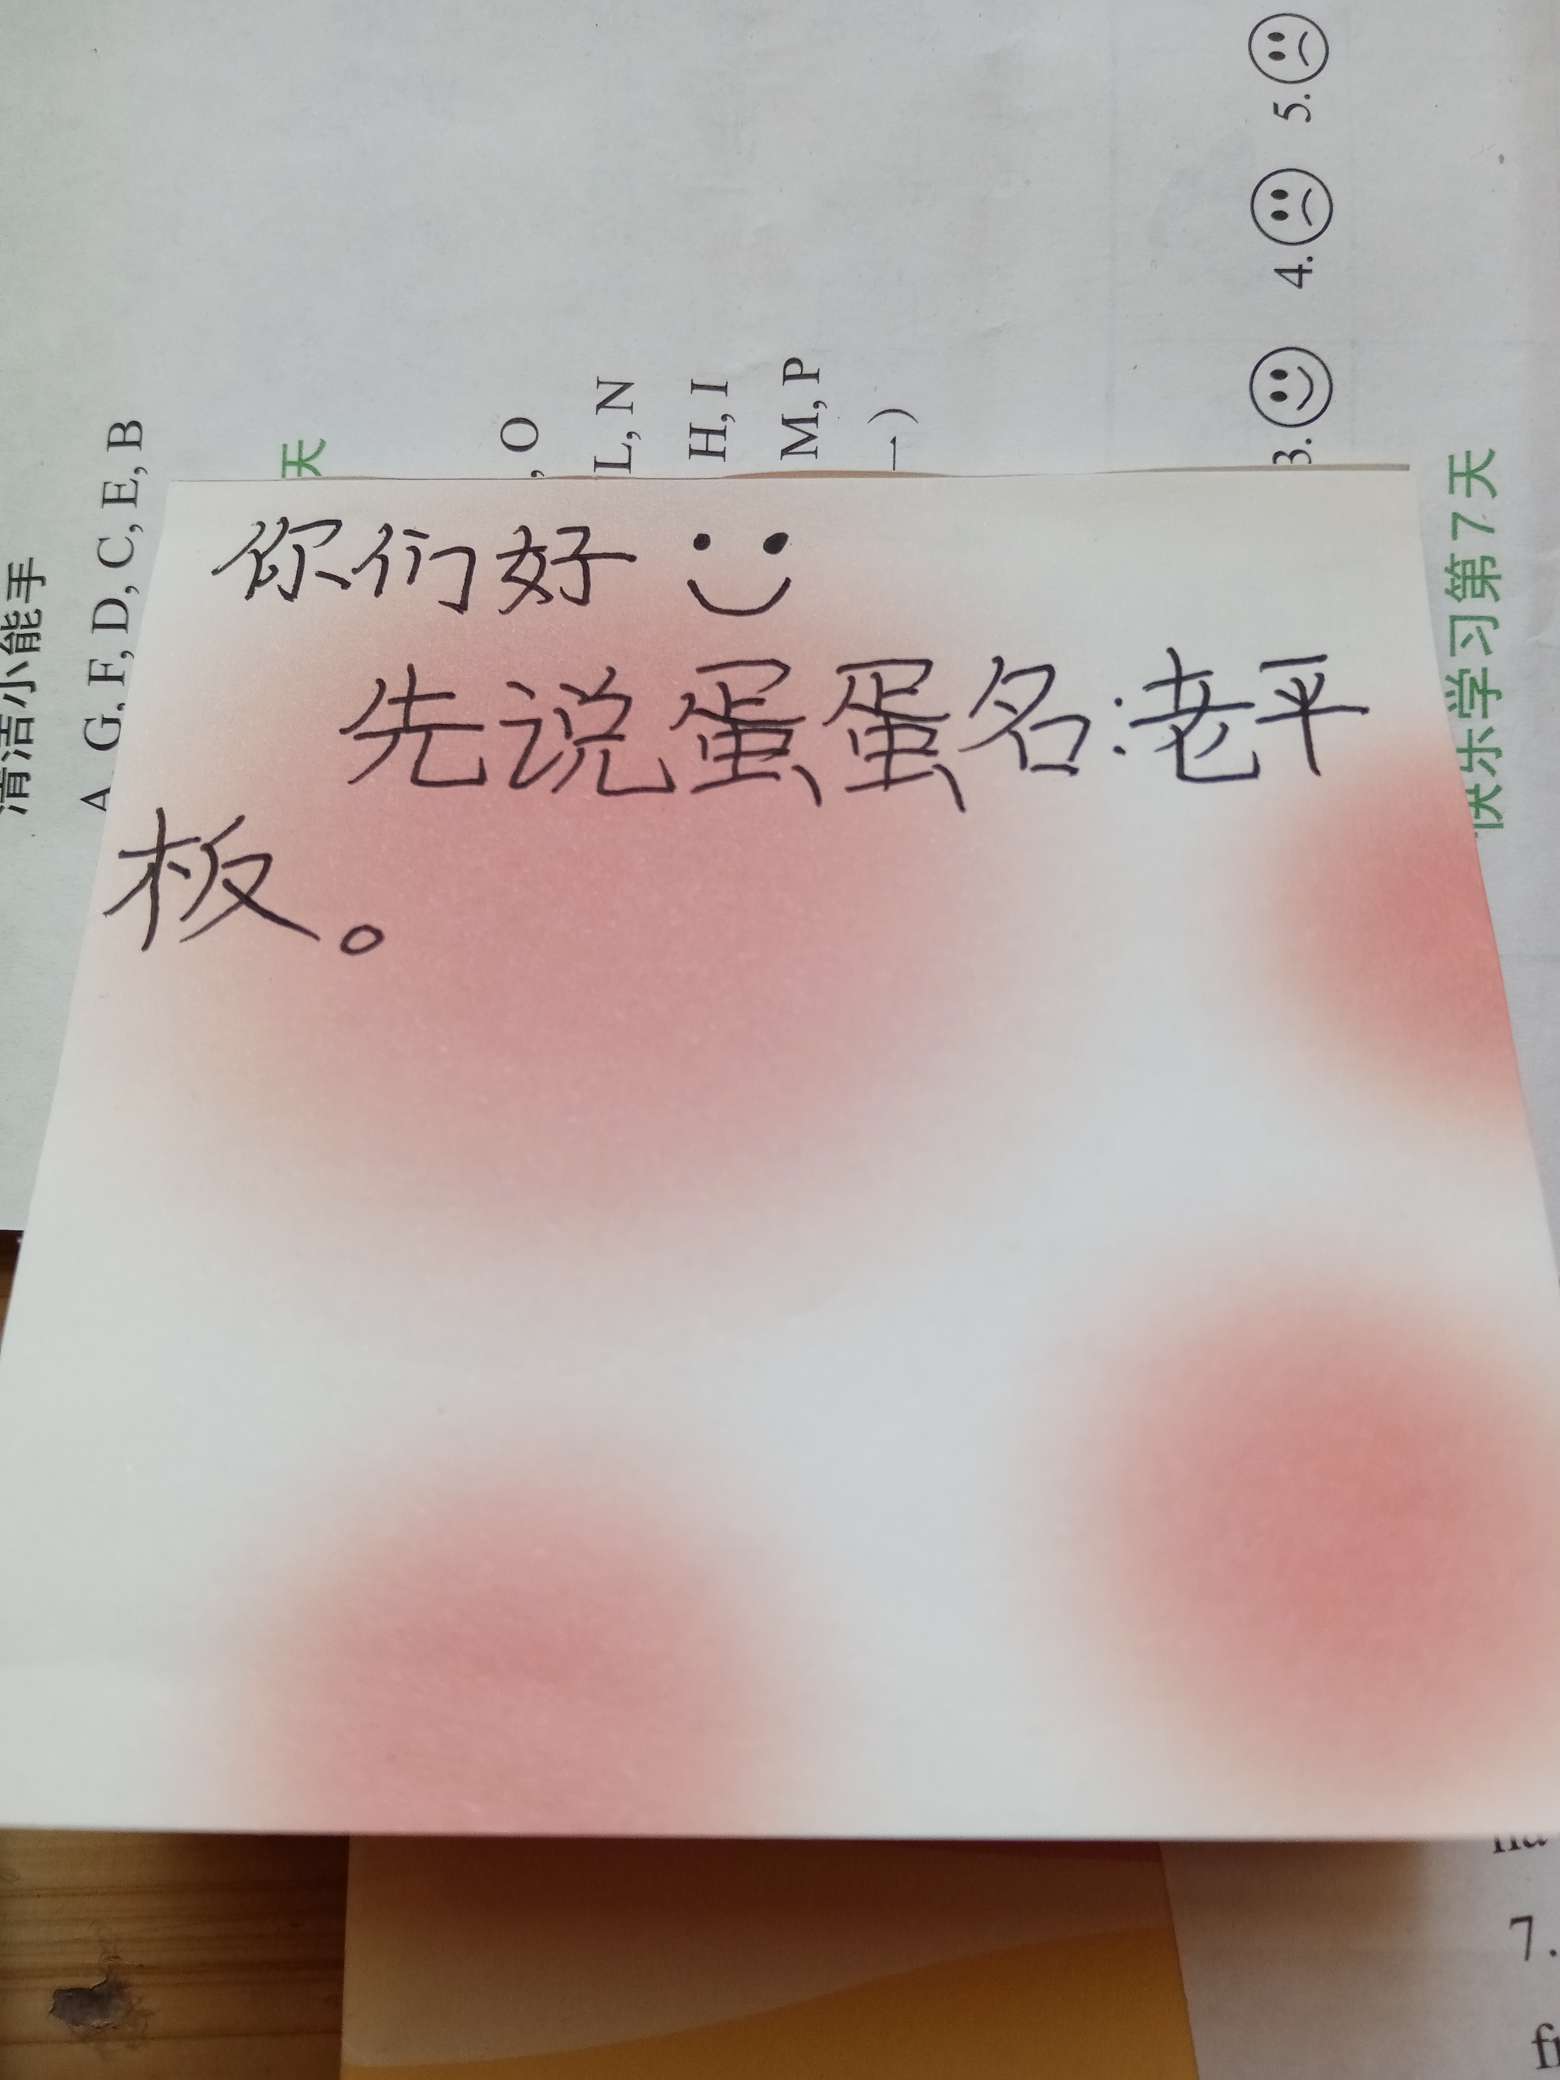 你们好
先说蛋蛋名:老平
板。
清洁小能手
A, G, F, D, C, E, B
天
, O
L, N
H, I
M, P
一)
3. 4. 5.
快乐学习第7天
7.